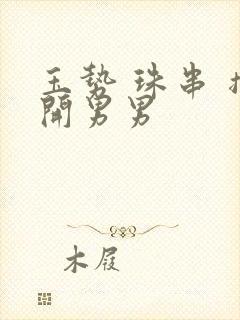 玉势 珠串
開男男
木屐